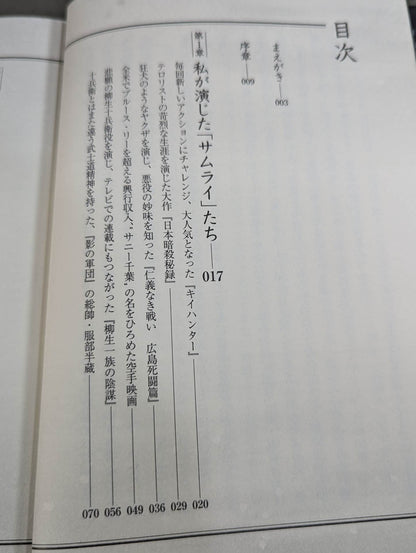 目次
まえがき——003
序章——009
第1章 私が演じた「サムライ」たち——017
毎回新しいアクションにチャレンジ、大人気となった『キイハンター』——020
テロリストの苛烈な生涯を演じた大作『日本暗殺秘録』——029
狂犬のようなヤクザを演じ、悪役の妙味を知った『仁義なき戦い 広島死闘篇』——036
全米でブルース・リーを超える興行収入、“サニー千葉”の名をひろめた空手映画——049
悲願の柳生十兵衛役を演じ、テレビでの連載にもつながった『柳生一族の陰謀』——056
十兵衛とはまた違う武士道精神を持った、『影の軍団』の総帥・服部半蔵——070